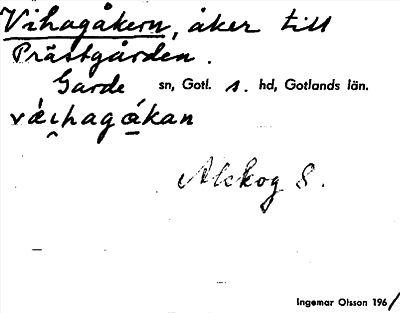 Vihagåkern, åker till
Prästgården.
Garde sn, Gotl. s. hd, Gotlands län.
vàihagákan
Akkog 8.
Ingemar Olsson 1961